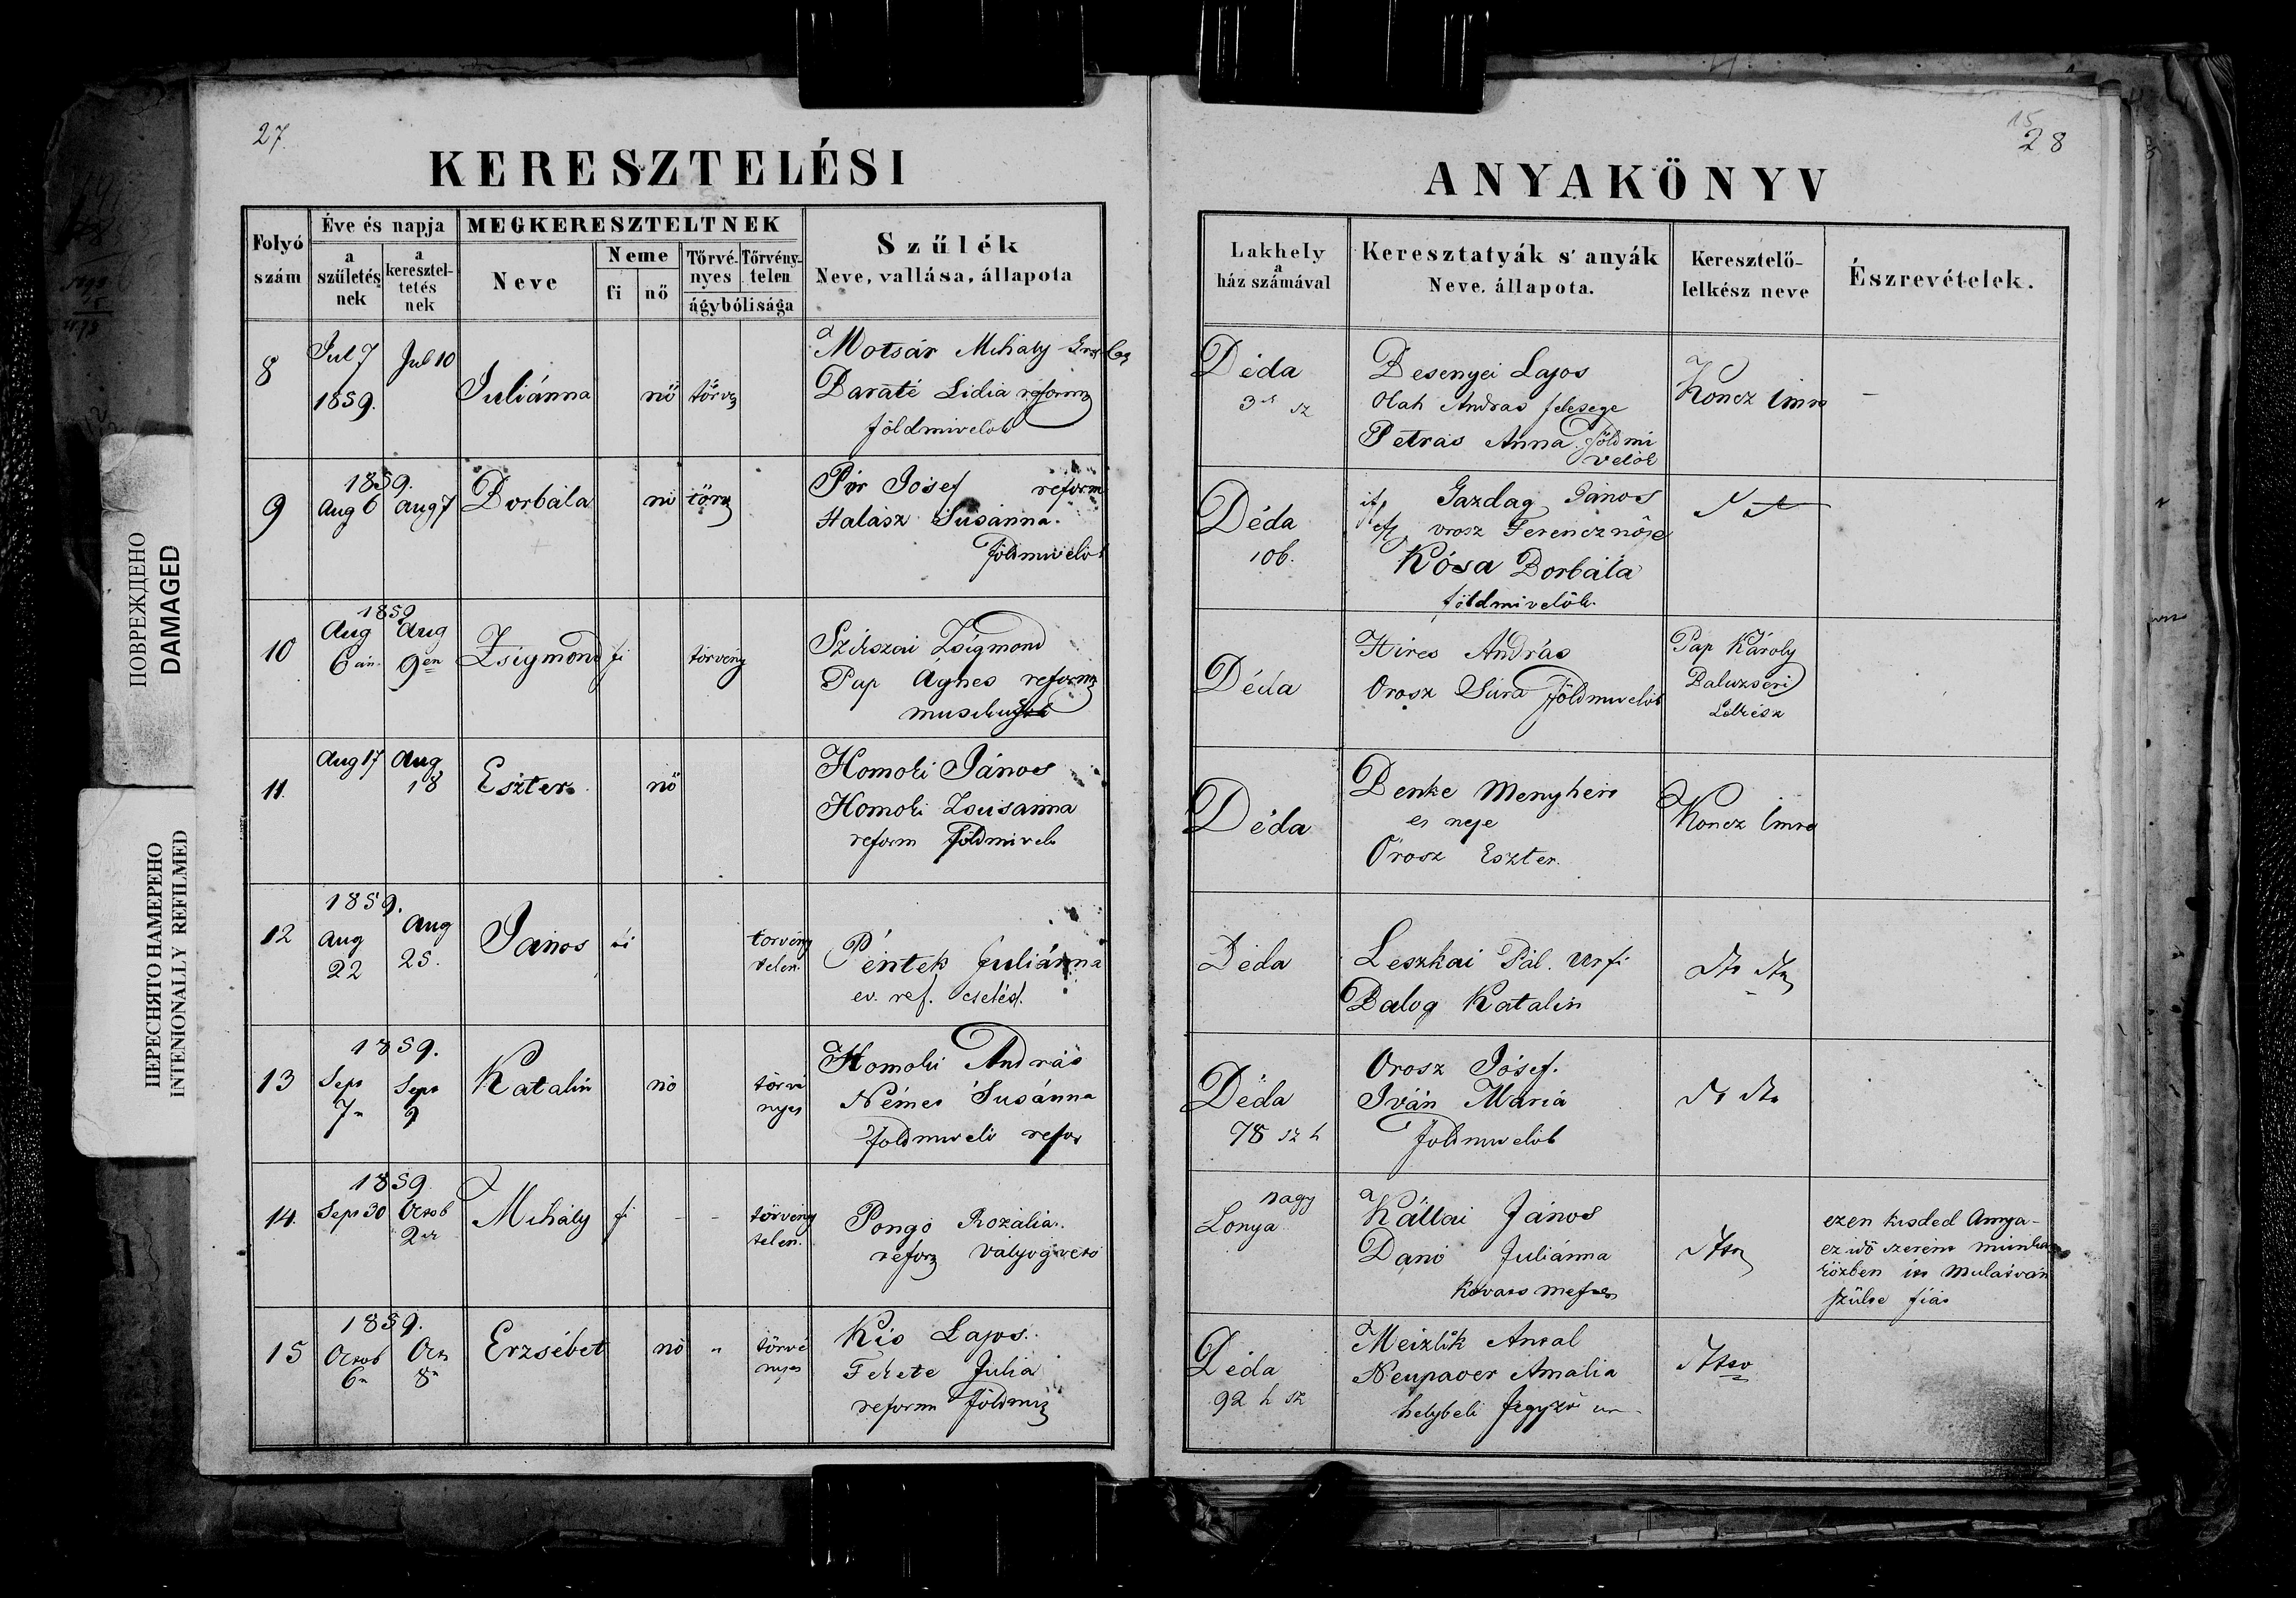 27
KERESZTELÉSI
Folyó szám
Éve és napja
a születésnek
a kereszteltetésnek
MEGKERESZTELTNEK
Neve
Neme
fi
nő
Törvényes
Törvénytelen
ágybólisága
Szűlék
Neve, vallása, állapota
8
Jul 7
1859.
Jul 10
Juliánna
nö
törv
Motsár Mihály
Baráté Lidia reform
földmivelök
9
1859.
Aug 6
Aug 7
Borbála
nö
törv
Pór Josef reform
Halász Susánna.
földmivelö
10
1859
Aug
6 án
Aug
9en
Zsigmond
fi
törvény
Zsigmond
Pap Ágnes reform
11.
Aug 17
Aug
18
Eszter
nö
Homoki János
Homoki Zsusánna
reform földmivelö
12
1859.
Aug
22
Aug
25.
János
fi
törvény
telen.
Péntek Juliánna
ev. ref. cseléd.
13
1859.
Sept
7n
Sept
9
Katalin
nö
törvé
nyes
Homoki András
Némei Susánna
földmivelö refor
14.
1859
Sept 30
Octob
2n
Mihály
fi
törvény
telen.
Pongó Rozália.
reform vályogvető
15
1859.
Octob
6n
Oct
8n
Erzsébet
nö
"
törvé
nyes
Kis Lajos.
Fekete Julia
reform földmiv
15
28
ANYAKÖNYV
Lakhely
a
ház számával
Keresztatyák s' anyák
Neve, állapota.
Keresztelő-
lelkész neve
Észrevételek.
Déda
3 sz
Desenyei Lajos
Olah Andras felesege
Petras Anna földmi
velök
Koncz Imre
Déda
106.
Gazdag János
orosz Ferencz nöje
Kósa Borbála
földmivelök.
Déda
Hires András
Orosz Sára földmivelök
Pap Károly
Lelkész
Déda
Benke Menyhért
és neje
Orosz Eszter.
Koncz Imre
Déda
Leszkai Pál. urfi
Balog Katalin
Déda
78 sz h
Orosz Jósef.
Iván Mária
földmivelök
nagy
Lonya
Kállai János
Danó Juliánna
ezen kisded Annya-
ez idö szerént munka
közben itt mulatván
szülte fiát
Déda
92 h sz
Meizlik Antal
Neupauer Amalia
helybeli Jegyzö ur
ПОВРЕЖДЕНО
DAMAGED
ПЕРЕСНЯТО НАМЕРЕНО
INTENIONALLY REFILMED